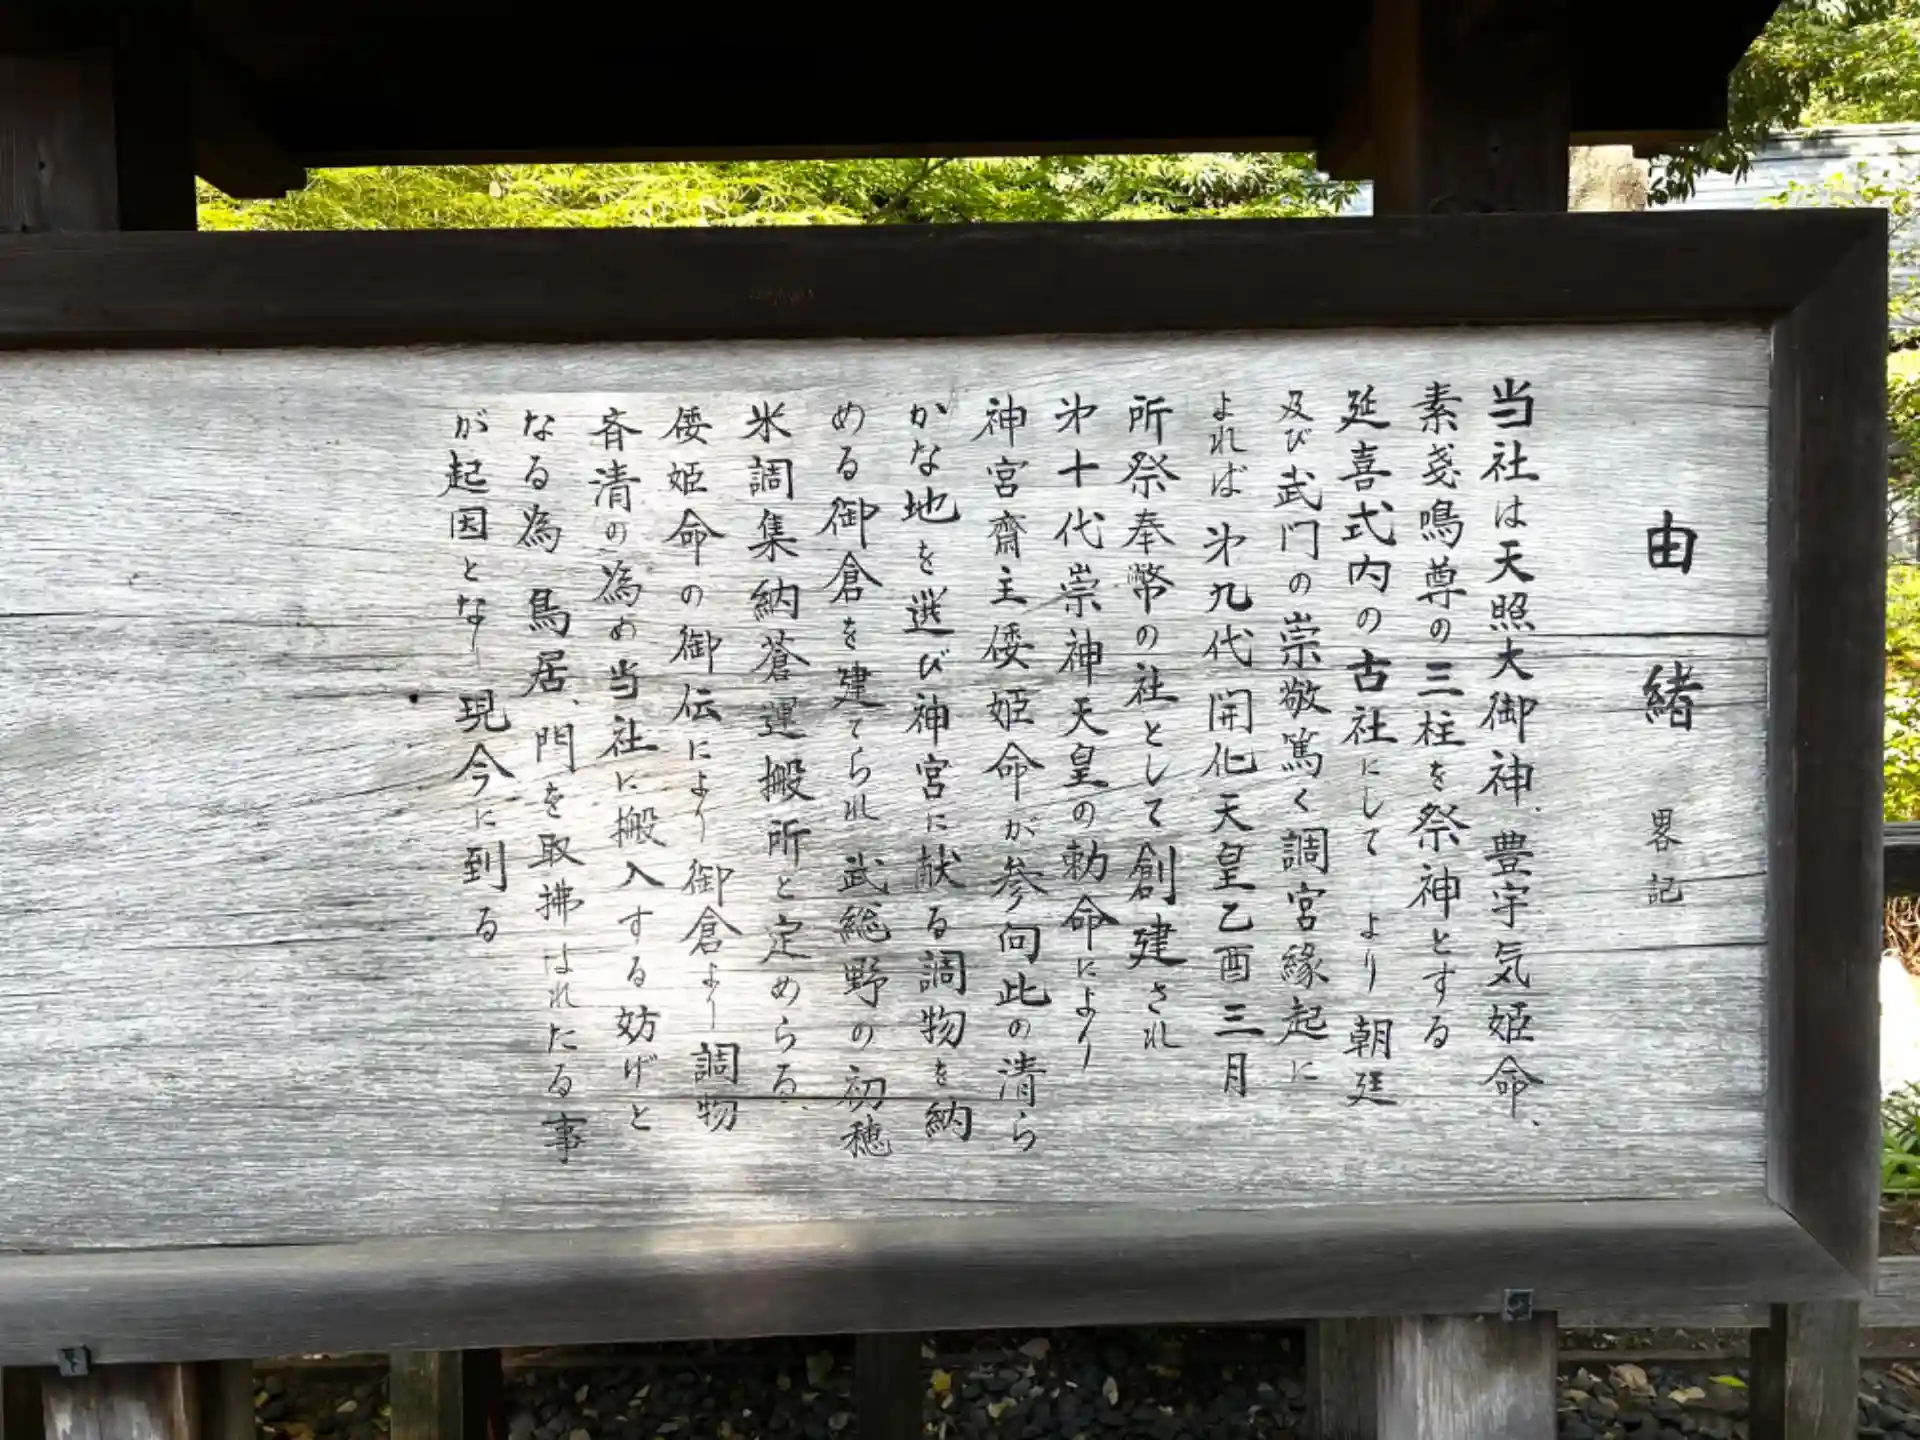 由緒 畧記
当社は天照大御神、豊宇気姫命、
素戔鳴尊の三柱を祭神とする
延喜式内の古社にして より 朝廷
及び武門の崇敬篤く調宮縁起に
よれば 㐧九代開化天皇乙酉三月
所祭奉幣の社として創建され
㐧十代崇神天皇の勅命により
神宮齋主倭姫命が参向此の清ら
かな地を選び神宮に献る調物を納
める御倉を建てられ 武総野の初穂
米調集納蒼運搬所と定めらる、
倭姫命の御伝により 御倉より調物
斉清の為め当社に搬入する妨げと
なる為 鳥居、門を取拂はれたる事
が起因となり 現今に到る